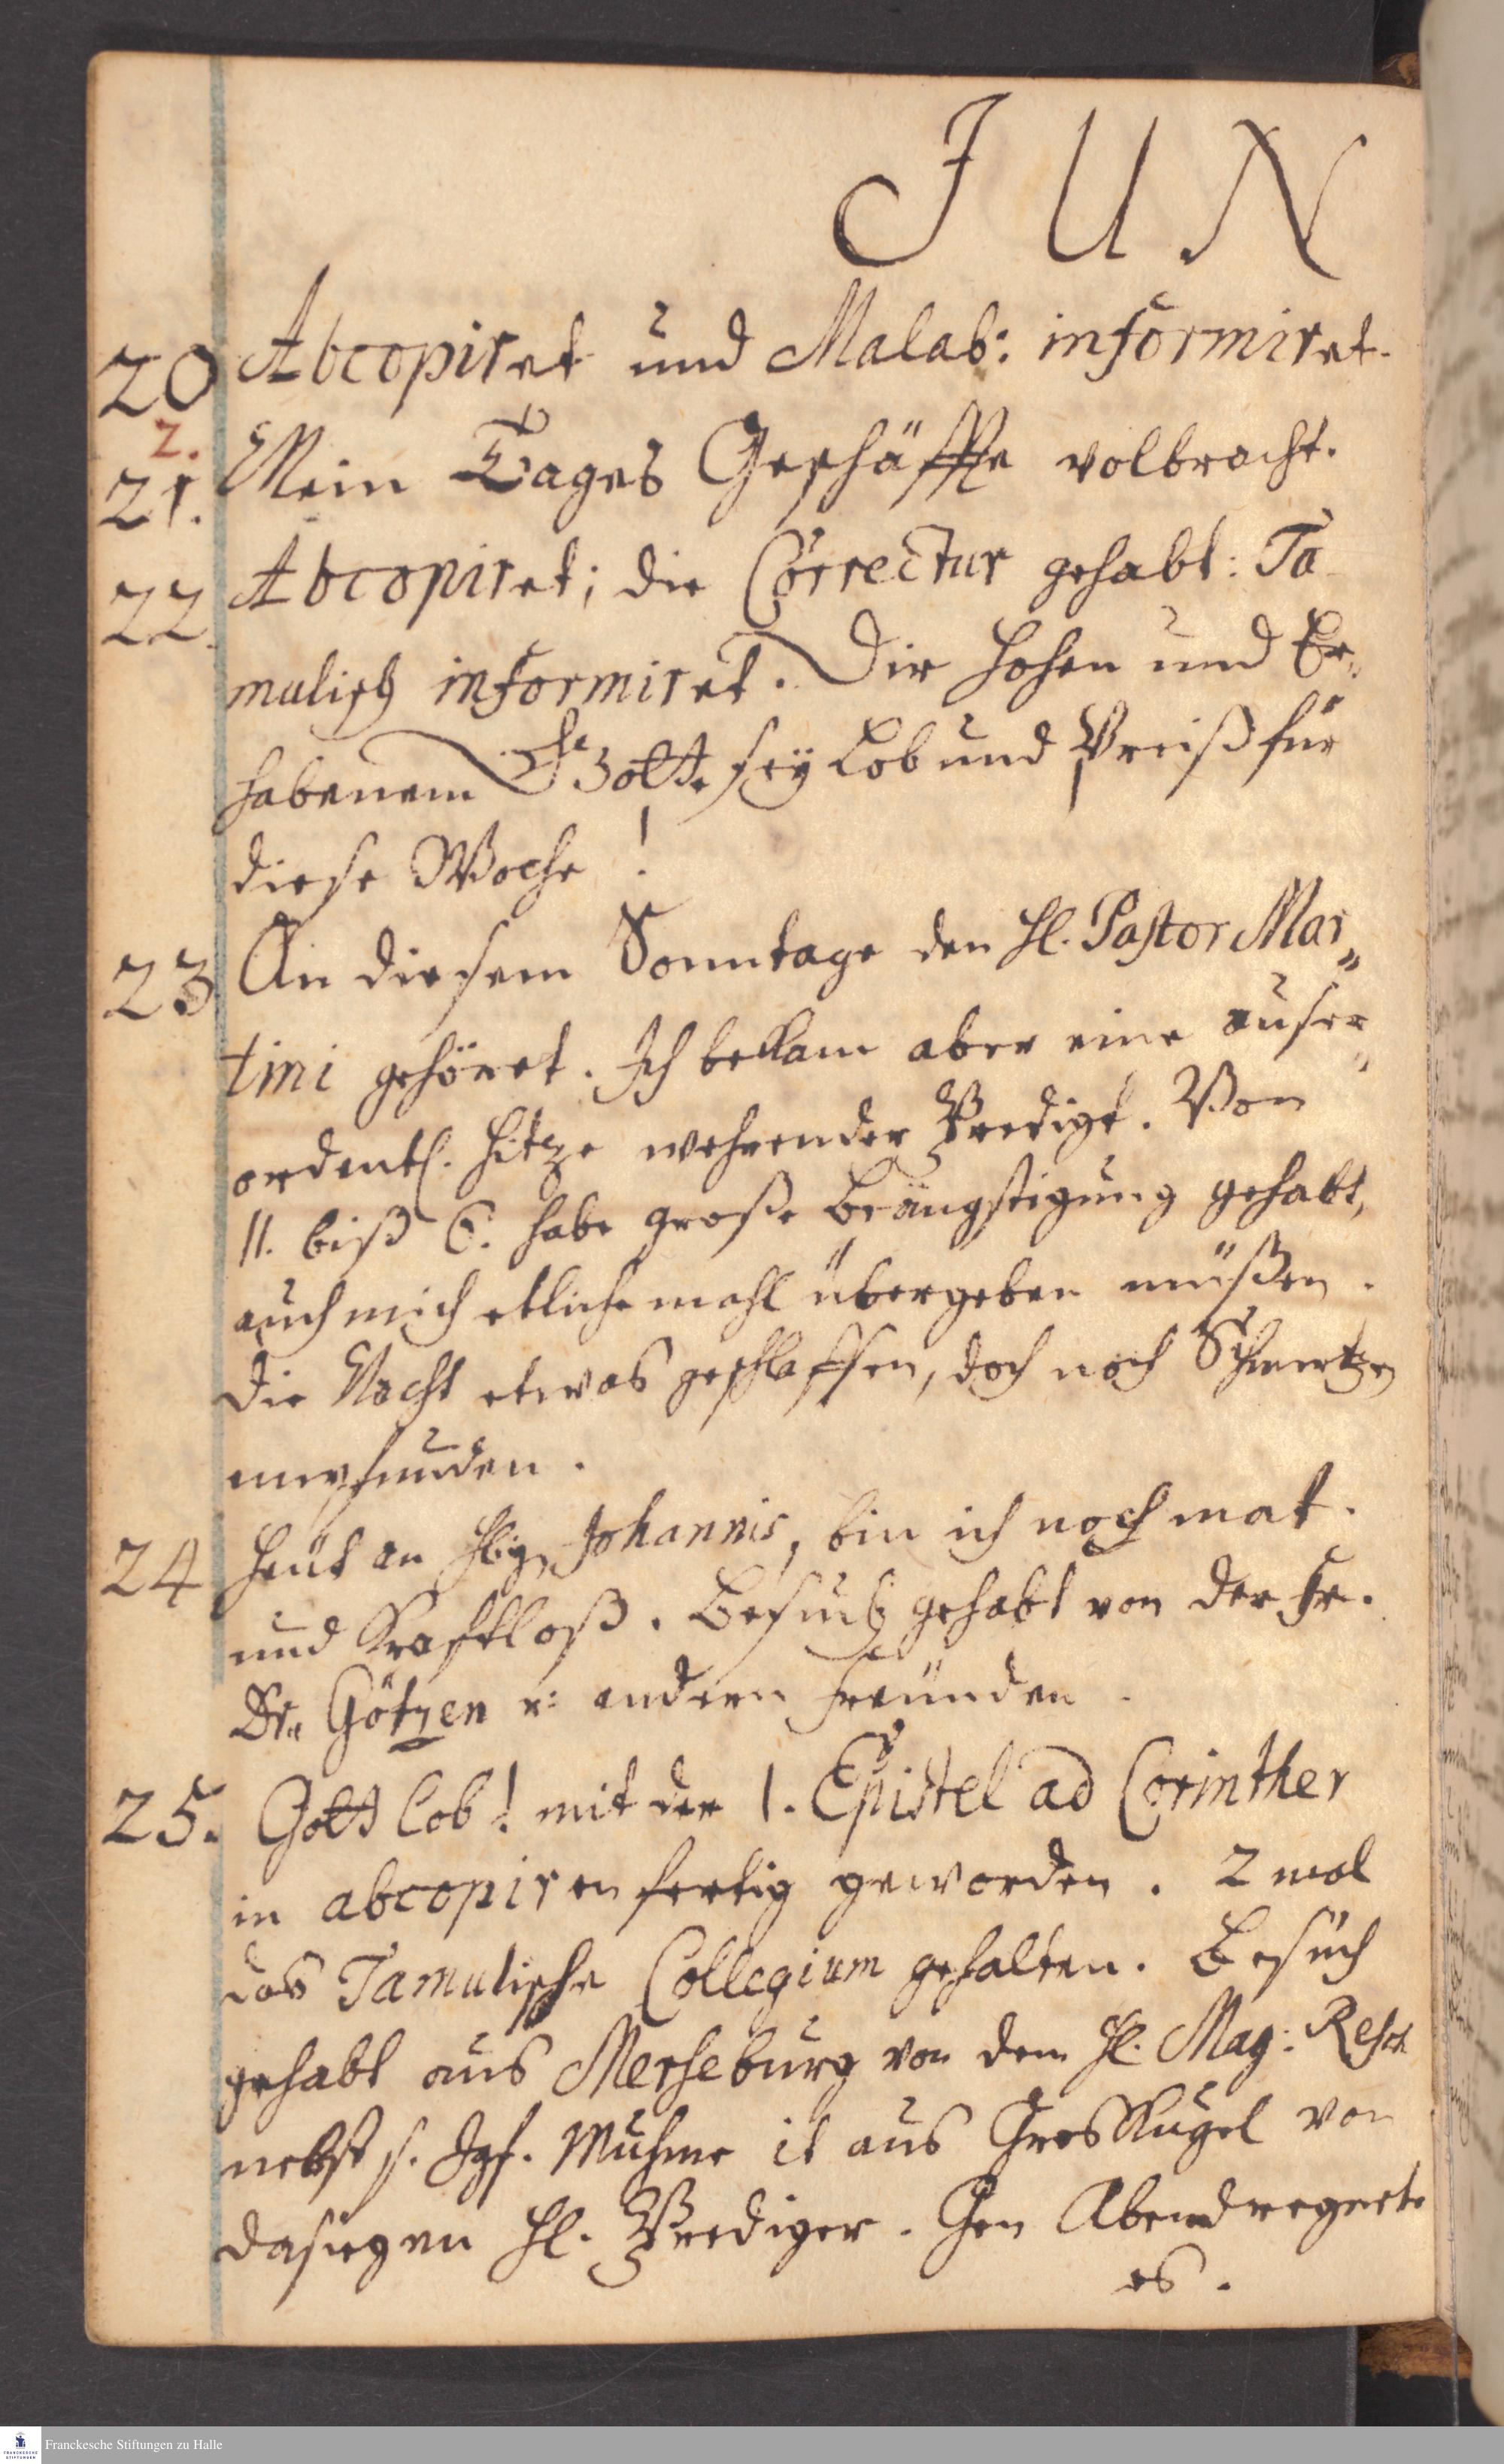 JUN
20 Abcopiret und Malab: informiret.
2.
21. Mein Tages Geschäffte volbracht.
22. Abcopiret; die Correctur gehabt: Ta
mulisch informiret. Dir hohen und Er„
habenem Gott sey Lob und Preiß für
diese Woche!
23 An diesem Sonntage den Hl. Pastor Mar„
tini gehöret. Ich bekam aber eine auser„
ordentl. Hitze wehrender Predigt. Von
11. biß 6. habe große Beängstigung gehabt,
auch mich etliche mahl übergeben müßen.
Die Nacht etwas geschlaffen, doch noch Schmertzen
empfunden.
24 Heut an Johannis, bin ich noch mat.
und Kraftloß. Besuch gehabt von der Fr.
Dr. Götzen u: andern Freunden.
25. Gott Lob! mit der 1. Epistel ad Corinther
in abcopiren fertig geworden. 2 mal
das Tamulische Collegium gehalten. Besuch
gehabt aus Merseburg von dem Hl. Mag:
nebst s. Jgf. Muhme it aus Groskugel von
dasiegen Hl. Prediger. Gen Abend regnete
es.
Franckesche Stiftungen zu Halle